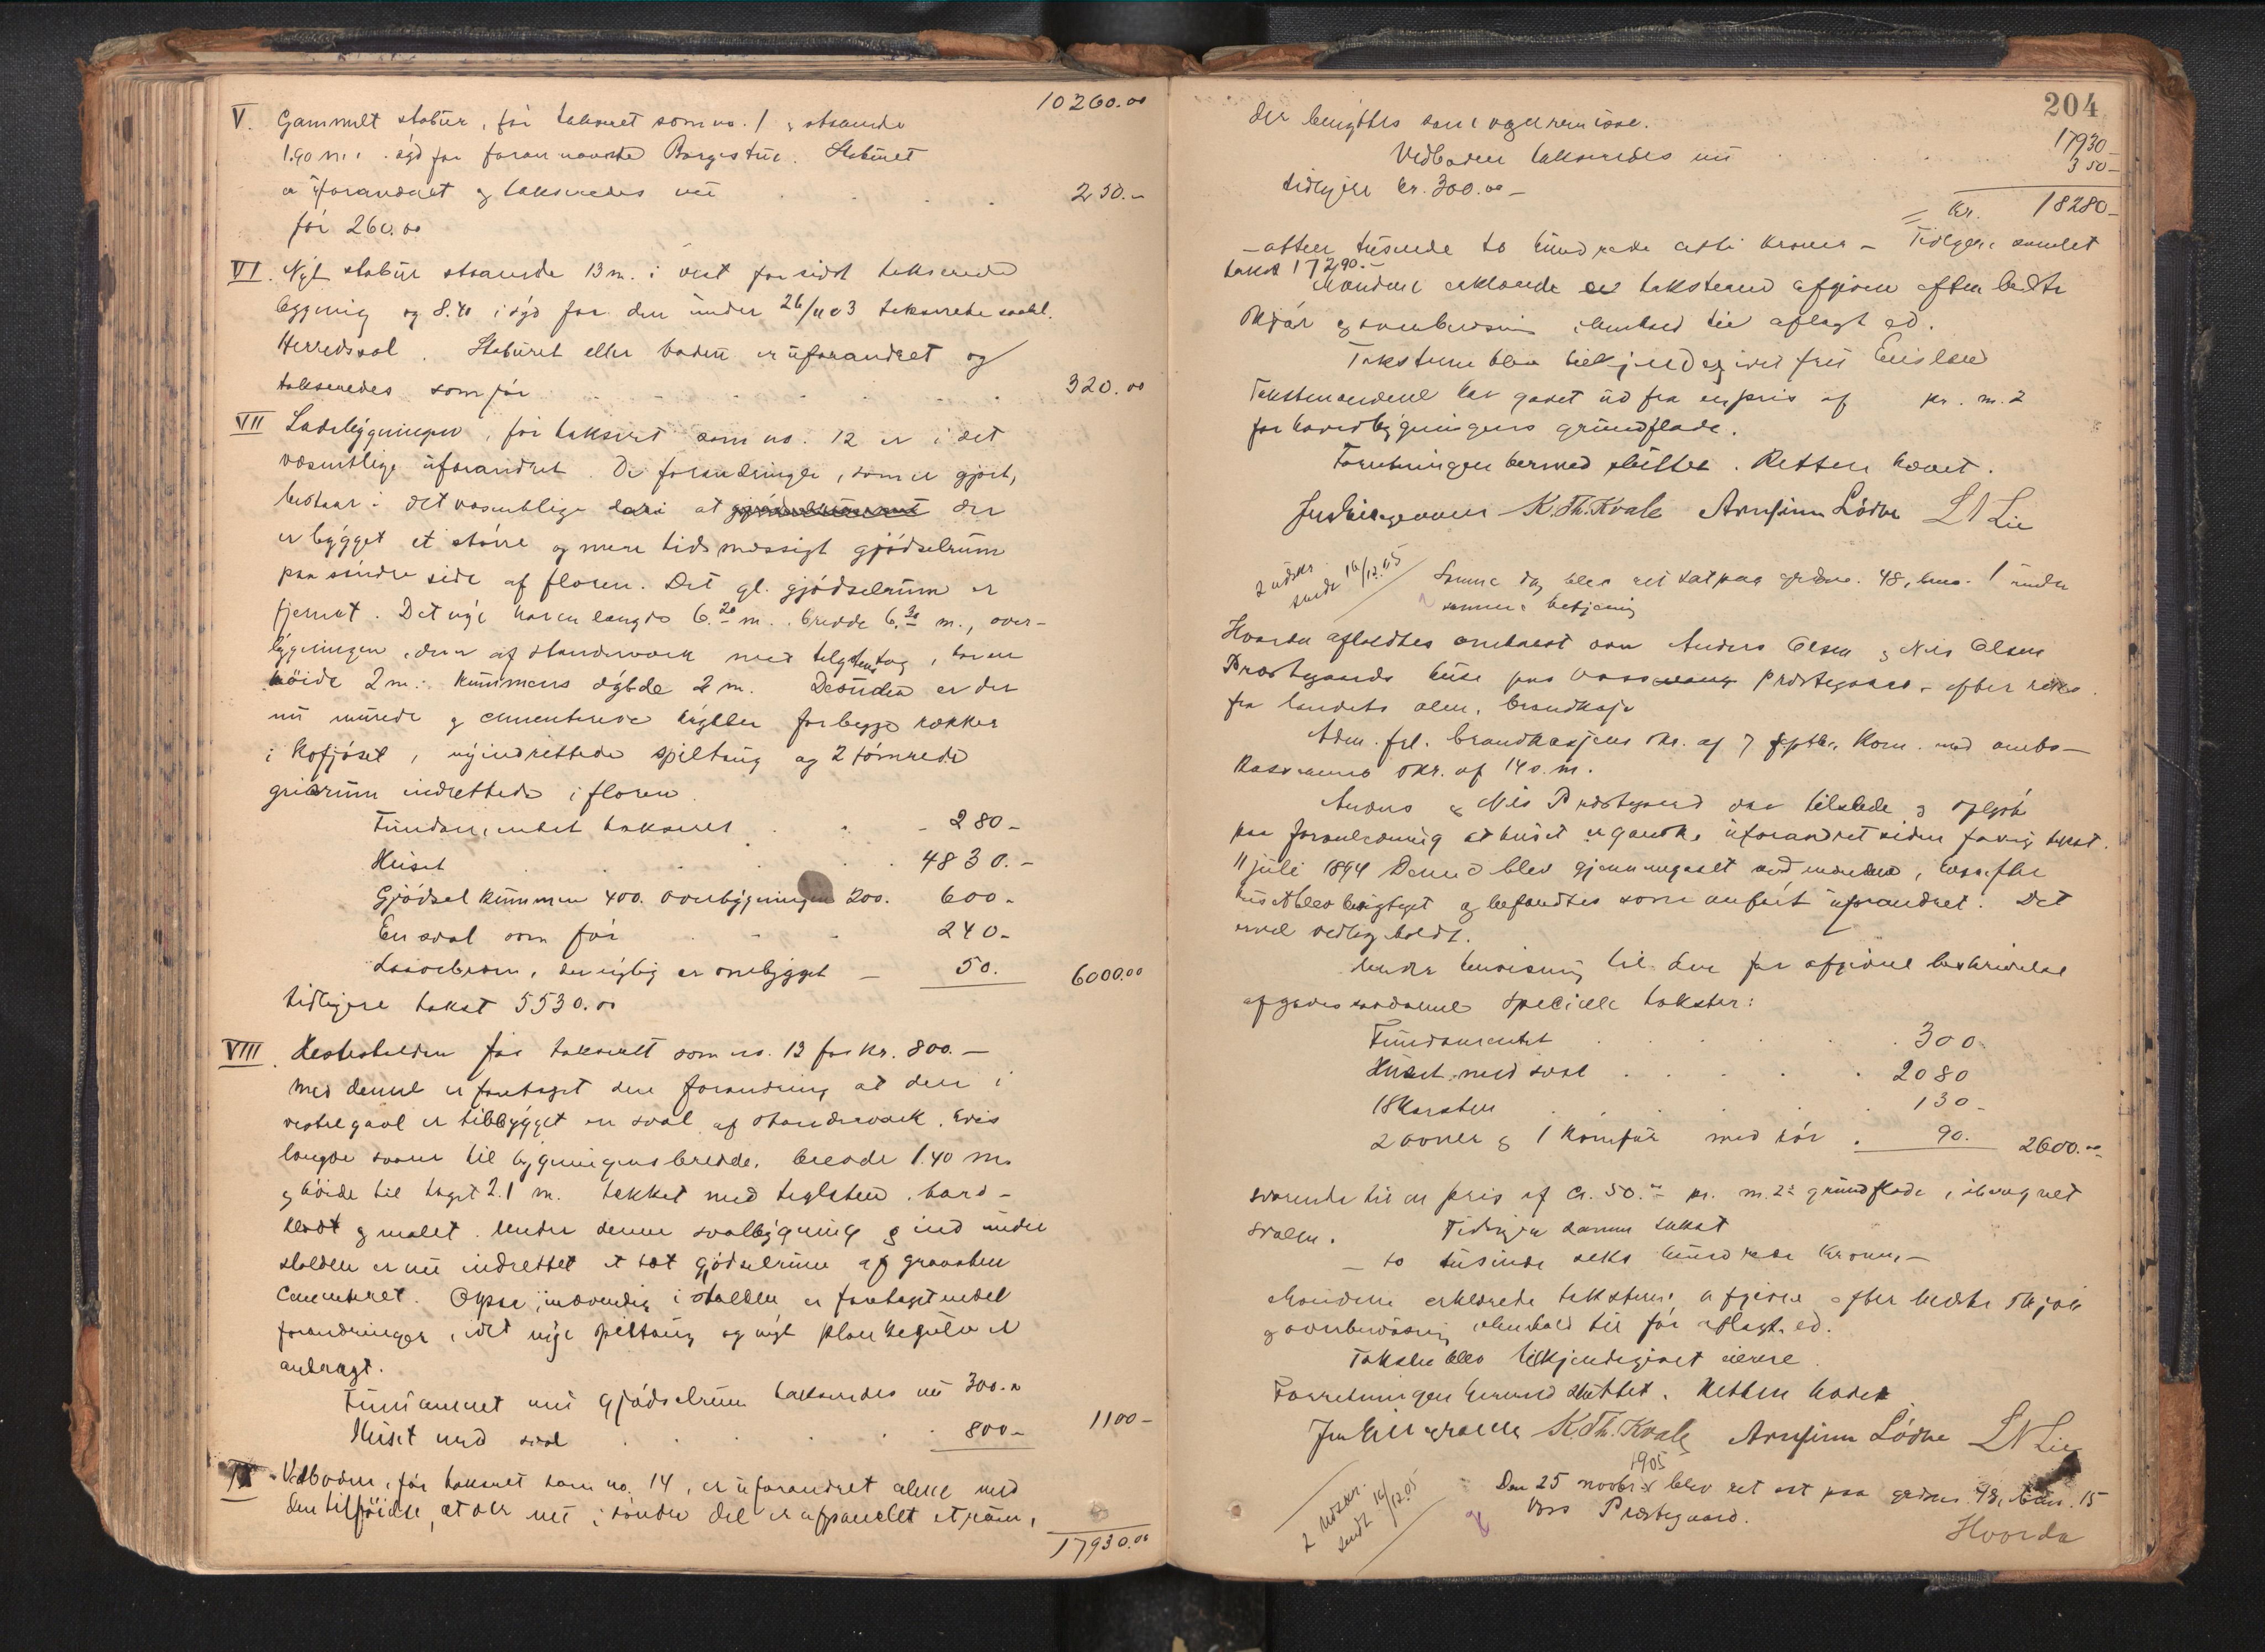 10260.00
V. Gammelt stabur, før taksert som no. 1, staaende
1.90 m. i syd for forannævnte Borgestue. Staburet
er uforandret og takseredes nu . . . 250.-
før 260.00
VI. Nyt stabur staaende 13 m. i vest for sidst takserede
bygning og 8.40 i syd for den under 26/11 03 takserede
Herredssal. Staburet eller boden er uforandret og
takseredes som før . . . . . . 320.00
VII Ladebygningen, før taksert som no. 12 er i det
væsentlige uforandret. De forandringer, som er gjort,
bestaar i det væsentlige deri at der
er bygget et større og mere tidsmæssigt gjødselrum
paa søndre side af floren. Det gl. gjødselrum er
fjernet. Det nye har en længde 6.20 m. bredde 6.30 m., over-
bygningen, der er af standerværk med teglstentag, har en
høide 2 m. kummens dybde 2 m. Desuden er der
nu murede og cementerede krybber for begge rækker
i kofjøset, nyindrettede spiltaug og 2 tømrede
griserum indrettede i floren.
Fundamentet taksert . . - 280-
Huset . . . . 4830.-
Gjødselkummen 400. overbygningen 200. 600-
En sval som før . - - 240-
Laavebroen, der nylig er ombygget - 50. 6000.00
tidligere takst 5530.00
VIII. Hestestalden før taksert som no. 13 for kr. 800.-
Med denne er foretaget den forandring at der i
vestre gavl er tilbygget en sval af standerværk, hvis
længde svarer til bygningens bredde, bredde 1.40 m.
og høide til taget 2.1 m. tækket med teglsten, bord-
klædt og malet. Under denne svalbygning og ind under
stalden er nu indrettet et tæt gjødselrum af graasten
cementeret. Ogsaa indvendig i stalden er foretaget endel
forandringer, idet nye spiltaug og nyt plankegulv er
anbragt.
Fundamentet med gjødselrum takseredes nu 300.00
Huset med sval . . . . 800- 1100-
IX. Vedboden, før taksert som no. 14, er uforandret alene med
den tilføielse, at der nu i søndre del er afpanelet et rum,
17930.00
204
der benyttes som vognremisse. 17930-
Vedboden takseredes nu . . . . 350-
tidligere kr. 300.00-
Kr. 18280-
- atten tusende to hundrede otti kroner - Tidligere samlet
takst 17290.-
Mændene erklærede taksterne afgivne efter bedste
skjøn og overbevisning i henhold til aflagt ed.
Taksterne blev tilkjendegivet
Takstmændene har gaaet ud fra en pris af pr. m.2
for hovedbygningens grundflade.
Forretningen hermed sluttet. Retten hævet.
K. Th. Kvale Arnfinn Lødve L N Lie
2 udskr.
sendt 16/12.05
Samme dag blev ret sat paa grdno. 48, bno. 1 under
samme betjening
Hvorda afholdtes omtaxt over Anders Olsen og Nils Olsen
Præstegaards huse paa Præstegaard - efter rekv.
fra landets alm. brandkasse
Adm. frl. brandkassens skr. af 7 septbr. Kom. med ombs-
kasserens skr. af 14 s. m.
Anders og Nils Præstegaard var tilstede og oplyste
paa foranledning at huset er ganske uforandret siden forrige takst
11 juli 1894 Denne blev gjennemgaaet med mændene, hvorefter
huset blev besigtiget og befandtes som anført uforandret. Det
er vel vedligeholdt.
Under henvisning til den før afgivne beskrivelse
afgaves saadanne specielle takster:
Fundamentet . . . . . 300.
Huset med sval . . . . . 2080
1 Skorsten . . . . . 130-
2 ovner og 1 komfur med rør . 90. 2600.00
svarende til en pris af Cr. 50.00 pr. m.2 grundflade, iberegnet
svalen. Tidligere samme takst
- to tusinde seks hundrede kroner -
Mændene erklærede taksterne afgivne efter bedste skjøn
og overbevisning i henhold til før aflagt ed.
Taksten blev tilkjendegivet eierne.
Forretningen hermed sluttet. Retten hævet
K. Th. Kvale Arnfinn Lødve L N Lie
2 udskr.
sendt 16/12.05
1905
Den 25 novbr. blev ret sat paa grdno. 48, bno. 15
Voss Præstegaard.
Hvorda